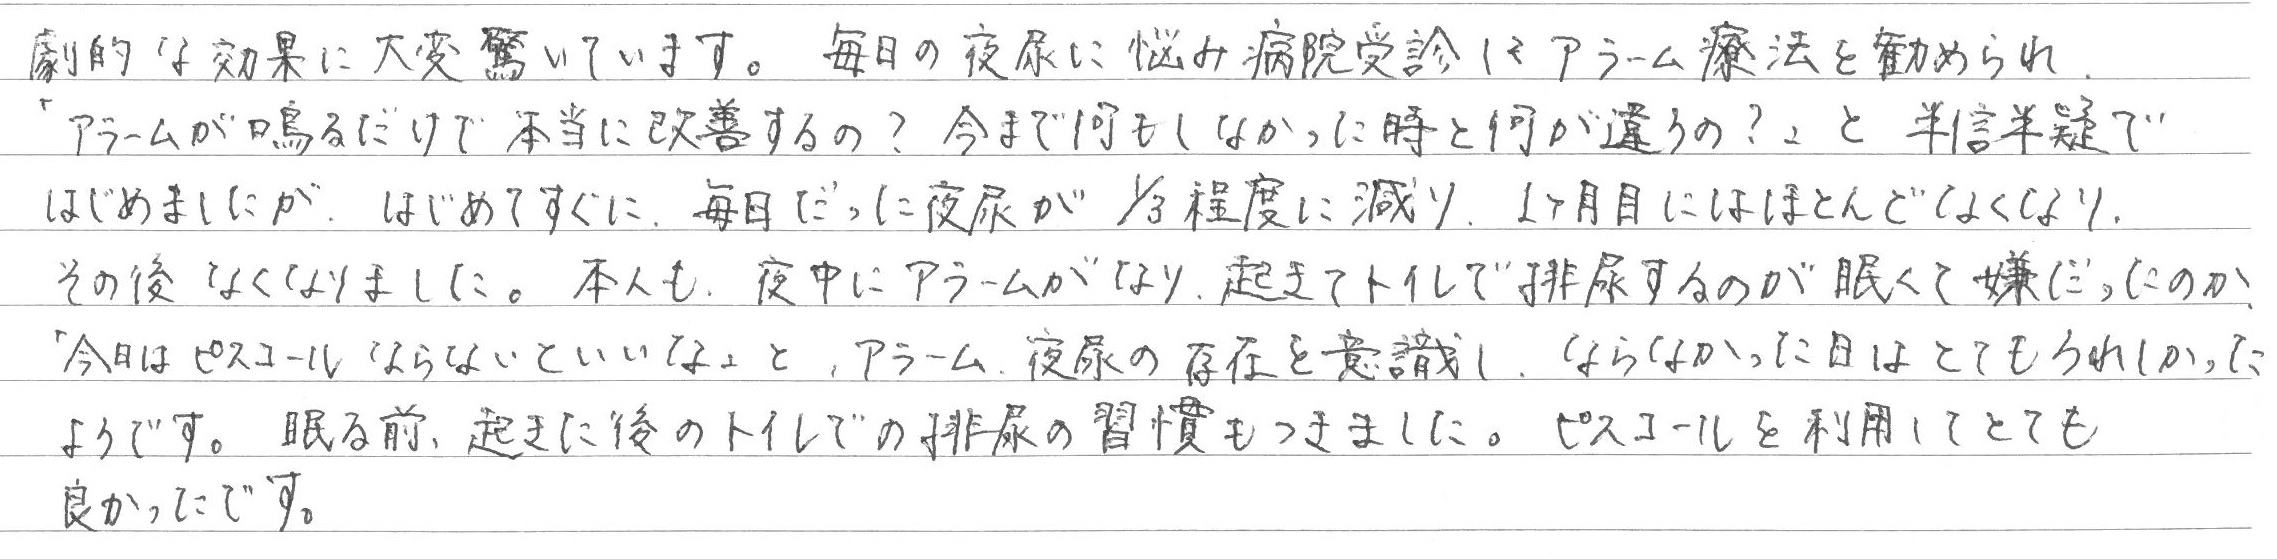 劇的な効果に大変驚いています。毎日の夜尿に悩み病院受診してアラーム療法を勧められ、
「アラームが鳴るだけで本当に改善するの？今まで何もしなかった時と何が違うの？」と半信半疑で
はじめましたが、はじめてすぐに、毎日だった夜尿が1/3程度に減り、1ヶ月目にはほとんどなくなり、
その後なくなりました。本人も、夜中にアラームがなり、起きてトイレで排尿するのが眠くて嫌だったのか、
「今日はピスコールならないといいな」と、アラーム、夜尿の存在を意識し、ならなかった日はとてもうれしかった
ようです。眠る前、起きた後のトイレでの排尿の習慣もつきました。ピスコールを利用してとても
良かったです。